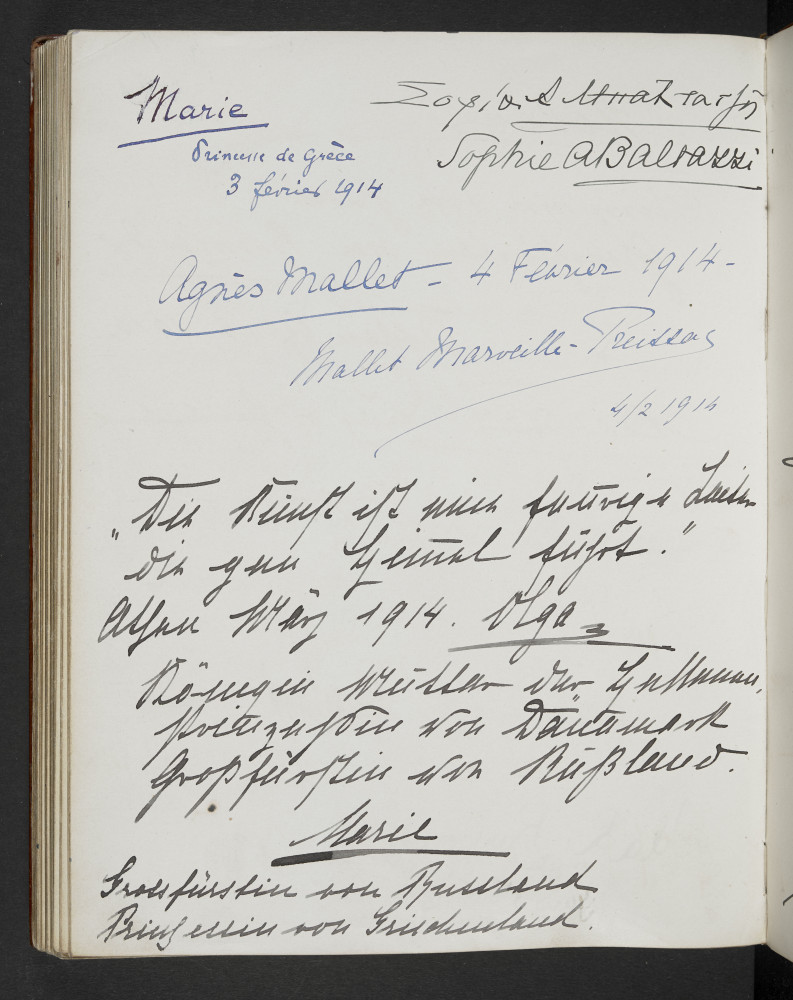 Marie
Princesse de Grèce
3 février 1914
Σοφία Α Μπαλτατζή
Sophie A Baltazzi
Agnès Mallet - 4 Février 1914 -
Mallet Marveille - Preissac
4/2 1914
„Die Kunst ist eine feurige Leiter
die gen Himmel führt."
Athen März 1914. Olga
Königin Mutter der Hellenen,
Prinzessin von Dänemark
Großfürstin von Rußland.
Marie
Grossfürstin von Russland
Prinzessin von Griechenland.